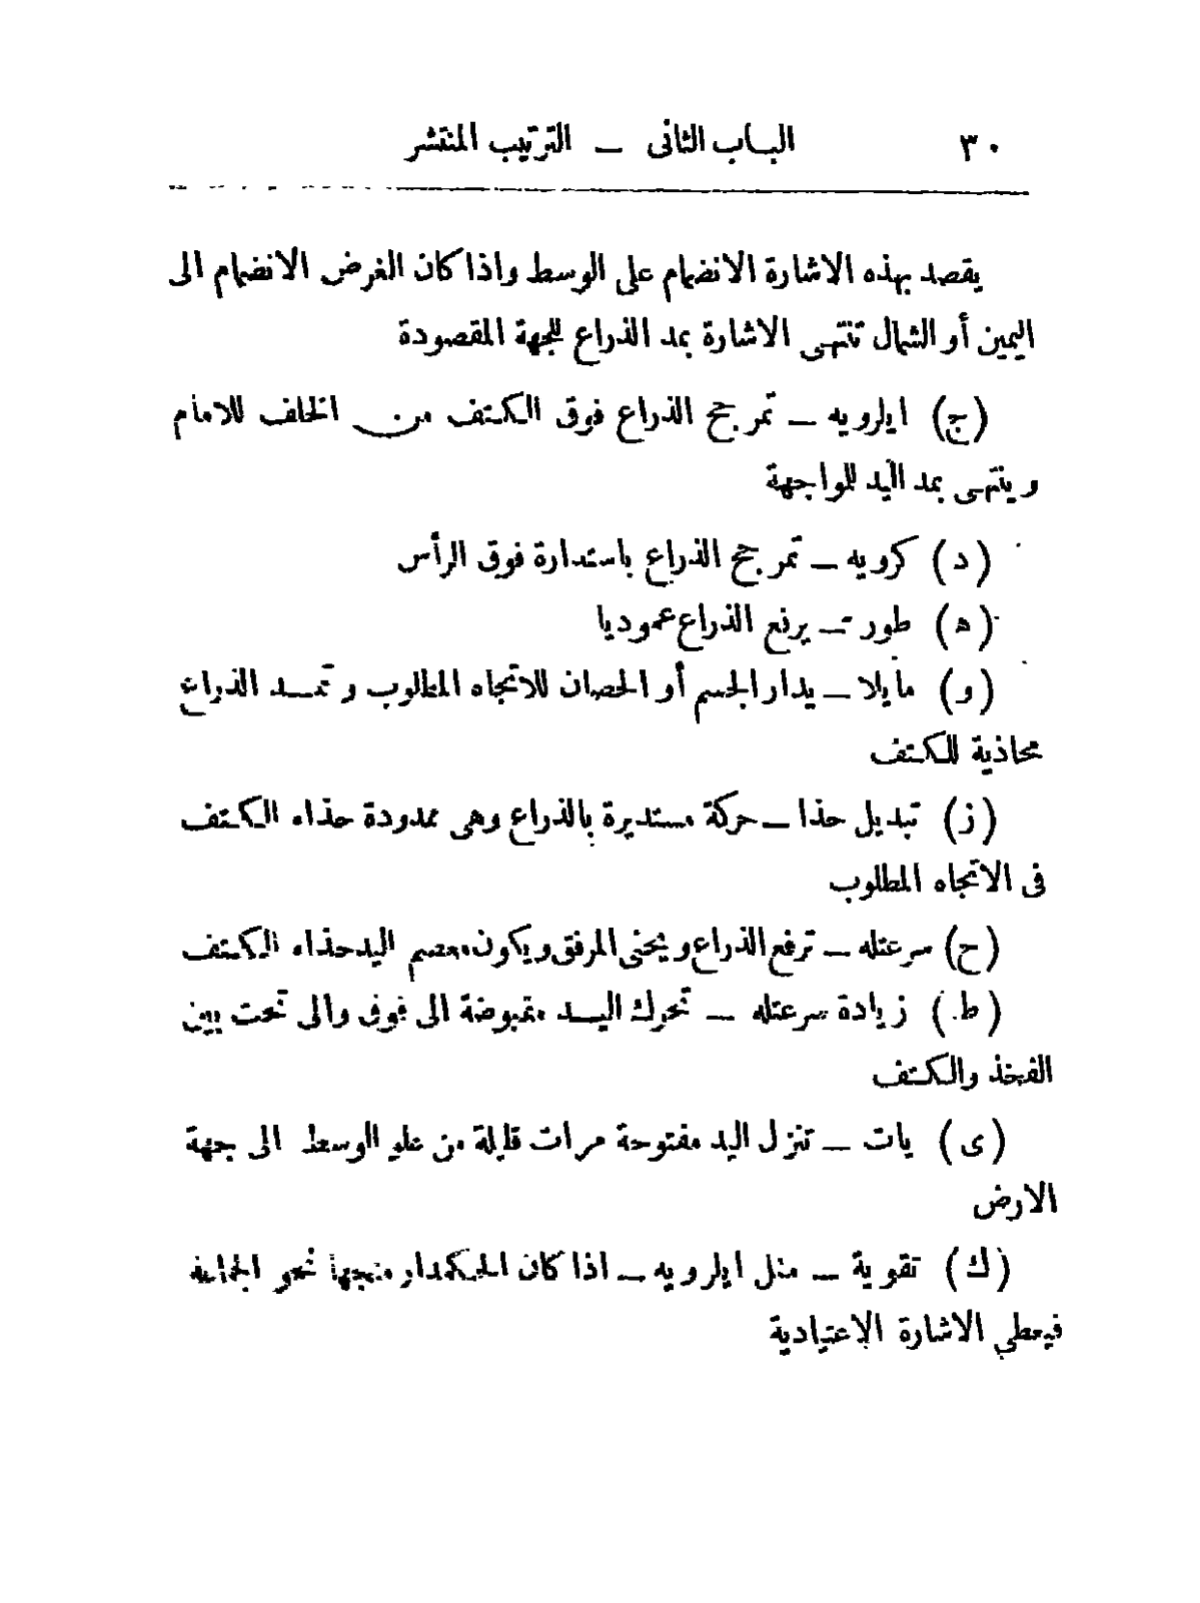 ٣٠ الباب الثانى – الترتيب المنتشر
يقصد بهذه الاشارة الانضمام على الوسط واذا كان الغرض الانضمام الى
اليمين أو الشمال تنتهى الاشارة بمد الذراع للجهة المقصودة
(ج) ايلرويه – تمرجح الذراع فوق الكتف من الخلف للامام
وينتهى بمد اليد للواجهة
(د) كرويه – تمرجح الذراع باستدارة فوق الرأس
(ه) طور – يرفع الذراع عموديا
(و) مايلا – يدار الجسم أو الحصان للاتجاه المطلوب وتمد الذراع
محاذية للكتف
(ز) تبديل حذا – حركة مستديرة بالذراع وهى ممدودة حذاء الكتف
فى الاتجاه المطلوب
(ح) سرعتله – ترفع الذراع ويحنى المرفق ويكون معصم اليد حذاء الكتف
(ط) زيادة سرعتله – تحرك اليد مقبوضة الى فوق والى تحت بين
الفخذ والكتف
(ى) يات – تنزل اليد مفتوحة مرات قليلة من علو الوسط الى جهة
الارض
(ك) تقوية – مثل ايلرويه – اذا كان الحكمدار متجها نحو الجماعة
فيعطي الاشارة الاعتيادية